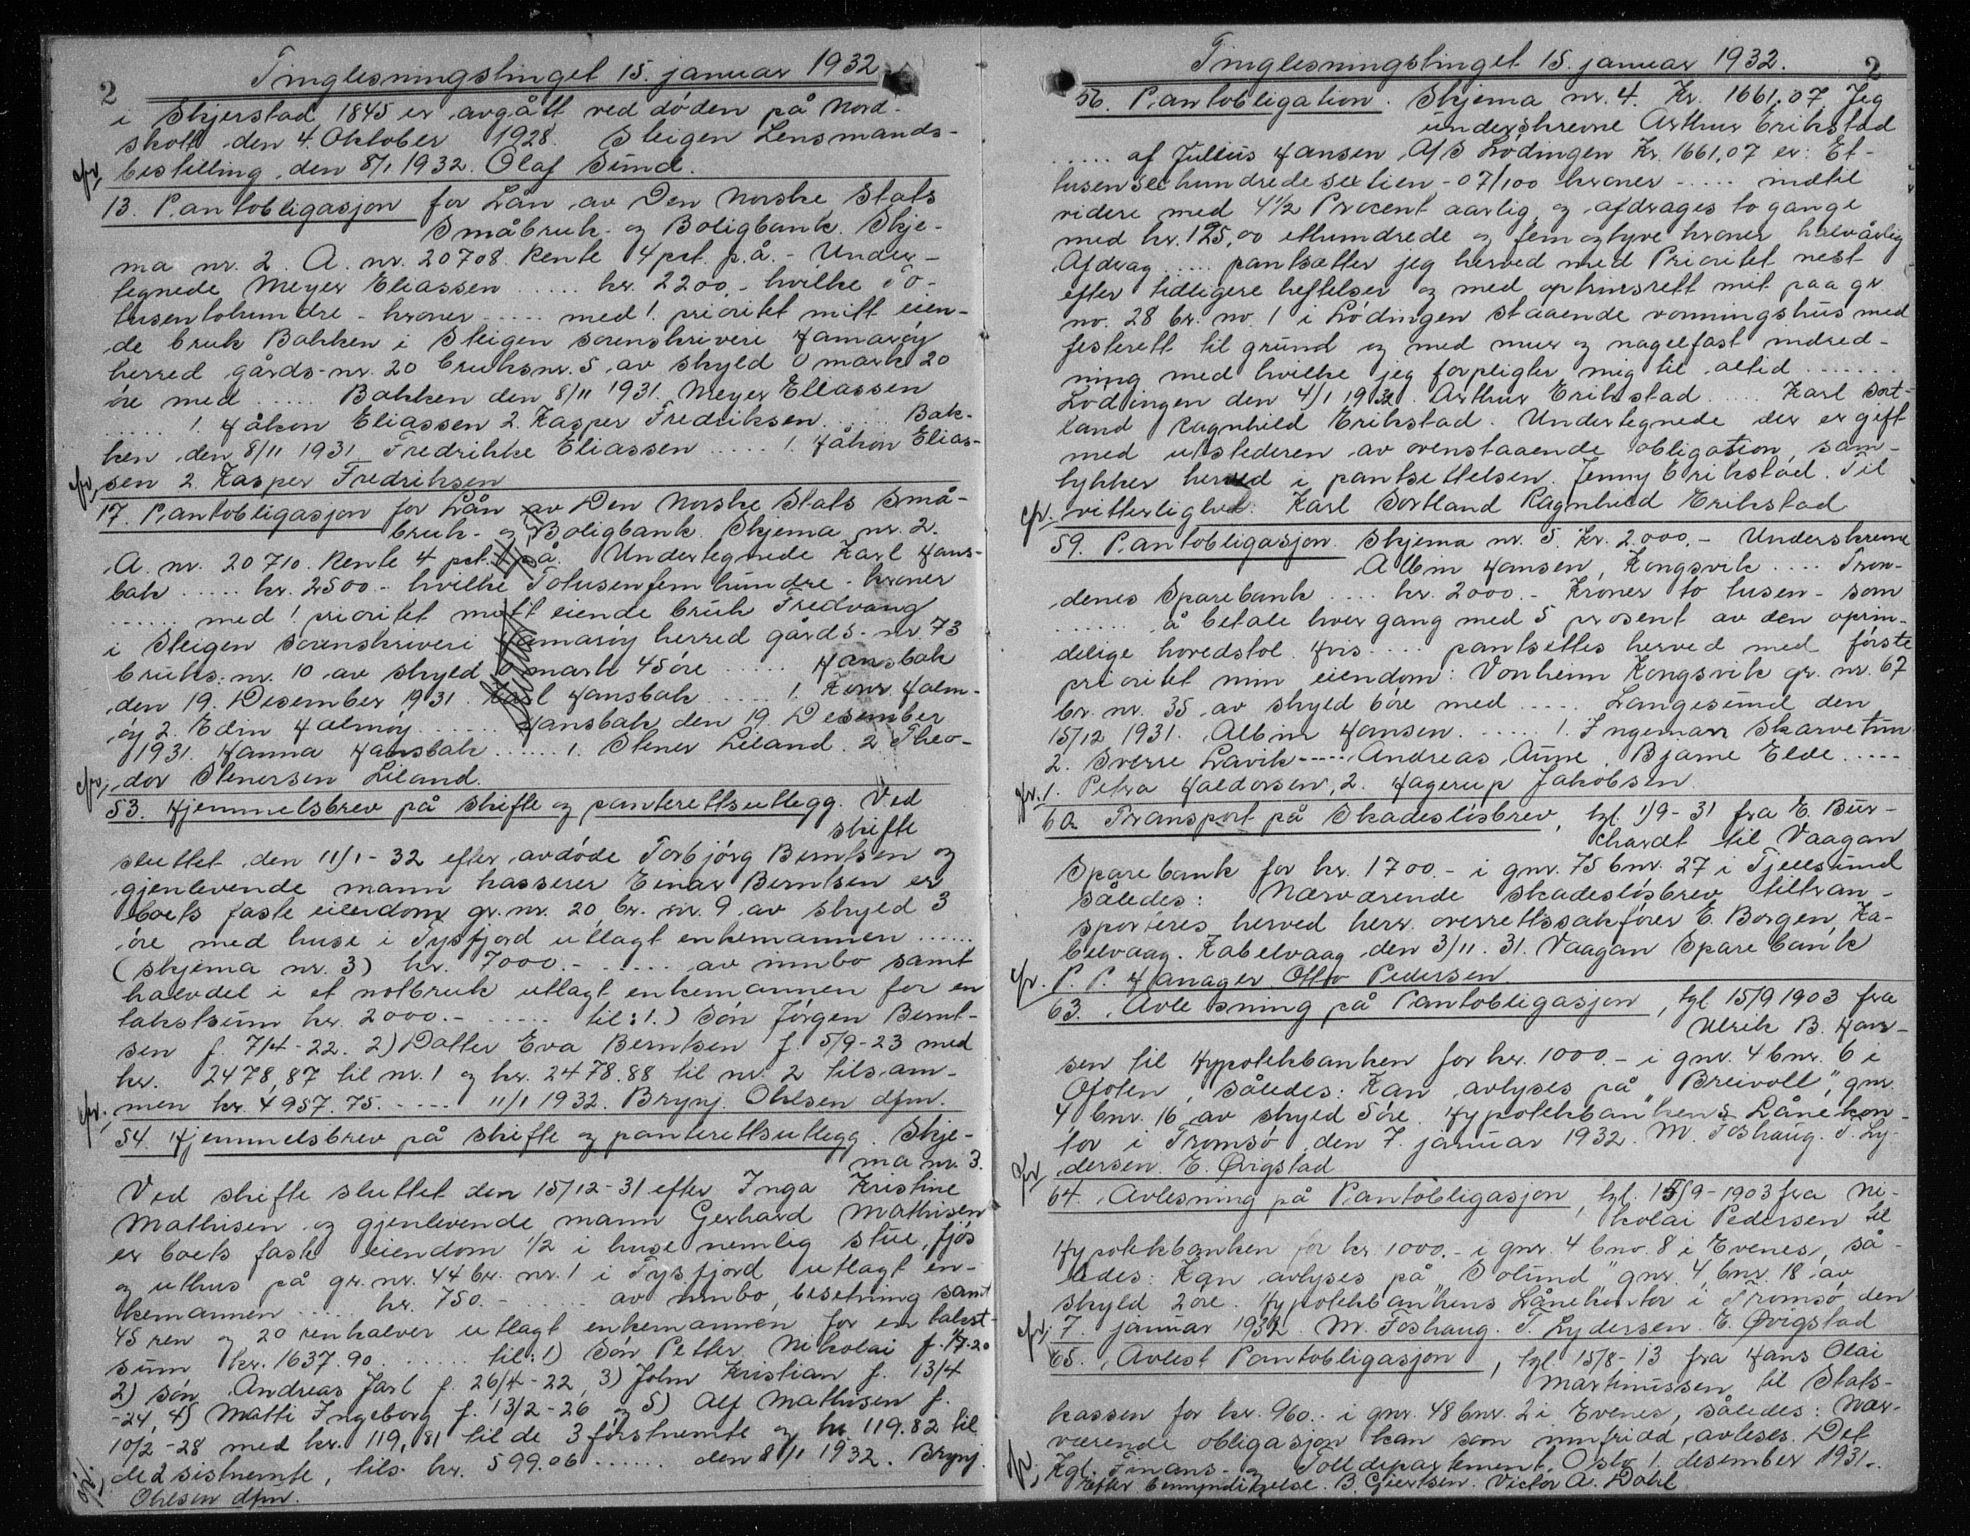 2 Tinglesningstinget 15. januar 1932
i Skjerstad 1845 er avgått ved døden på Nord-
skott den 4. Oktober 1928. Steigen Lensmands-
bestilling, den 8/1 1932. Olaf Sund.
13. Pantobligasjon for Lån av Den Norske Stats
Småbruk- og Boligbank. Skje-
ma nr. 2. A. nr. 20708. Rente 4 pct. p.å. - Under-
tegnede Meyer Eliassen ..... kr. 2200.- hvilke To-
tusentohundre - kroner ..... med 1. prioritet mitt eien-
de bruk Bakken i Steigen sorenskriveri Hamarøy
herred gårds-nr. 20 bruksnr. 5 av skyld 0 mark 20
øre med ..... Bakken den 8/11 1931. Meyer Eliassen
..... 1. Håkon Eliassen 2. Kasper Fredriksen ..... Bak-
ken den 8/11 1931 Fredrikke Eliassen ..... 1. Håkon Elias-
sen 2. Kasper Fredriksen
17. Pantobligasjon for Lån av Den Norske Stats Små-
bruk- og Boligbank. Skjema nr. 2.
A. nr. 20710. Rente 4 pct. p.å. Undertegnede Karl Hans-
bak ..... kr. 2500.- hvilke Totusenfemhundre - kroner
..... med 1. prioritet mitt eiende bruk Fredvang
i Steigen sorenskriveri Hamarøy herred gårds-nr. 73
bruks.nr. 10 av skyld 0 mark 45 øre ..... Hansbak
den 19. Desember 1931. Karl Hansbak ..... 1. Konr. Halm-
øy 2. Edin Halmøy ..... Hansbak den 19. Desember
1931. Hanna Hansbak ..... 1. Stener Leland. 2. Theo-
dor Stenersen Leland.
53. Hjemmelsbrev på skifte og panterettsutlegg. Ved
skifte
sluttet den 11/1-32 efter avdøde Torbjørg Berntsen og
gjenlevende mann kasserer Einar Berntsen er
boets faste eiendom gr.nr. 20, br. nr. 9 av skyld 3
øre med huse i Tysfjord utlagt enkemannen .....
(skjema nr. 3) kr. 7000.- ..... av innbo samt
halvdel i et notbruk utlagt enkemannen for en
takstsum kr. 2000.- ..... til: 1.) Søn Jørgen Bernt-
sen f. 7/4-22. 2) Datter Eva Berntsen f. 5/9-23 med
kr. 2478,87 til nr. 1 og kr. 2478.88 til nr. 2 tilsam-
men kr. 4957.75. ..... 11/1 1932. Brynj. Ohlsen dfm.
54. Hjemmelsbrev på skifte og panterettsutlegg. Skje-
ma nr. 3.
Ved skifte sluttet den 15/12-31 efter Inga Kristine
Mathisen og gjenlevende mann Gerhard Mathisen
er boets faste eiendom 1/2 i huse nemlig stue, fjøs
og uthus på gr. nr. 44 br. nr. 1 i Tysfjord utlagt en-
kemannen ..... kr. 750.- ..... av innbo, besetning samt
45 ren og 20 renkalver utlagt enkemannen for en takst-
sum kr. 1637.90. ..... til: 1) Søn Petter Nikolai
2) søn Andreas Jarl f. 26/4-22, 3) John Kristian f. 13/4
-24, 4) Matti Ingeborg f. 13/2-26 og 5) Alf Mathisen f.
10/2-28 med kr. 119,81 til de 3 førstnemte og kr. 119.82 til
de 2 sistnemte, tils. kr. 599.06 ..... den 11/1 1932. Brynj.
Ohlsen dfm.
Tinglesningstinget 15. januar 1932. 2
56. Pantobligation. Skjema nr. 4. Kr. 1661,07 Jeg
underskrevne Arthur Erikstad
..... af Julius Hansen A/S Lødingen Kr. 1661,07 er: Et-
tusensekshundredesextien - 07/100 kroner - ..... indtil
videre med 4 1/2 Procent aarlig og afdrages to gange
med kr. 125,00 ethundrede og femogtyve kroner halvårlig
Afdrag ..... pantsætter jeg herved med Prioritet nest
efter tidligere heftelser og med opkursrett mit paa gr
no. 28 br. no. 1 i Lødingen staaende vonningshus med
festerett til grund og med mur og nagelfast indred-
ning med hvilke jeg forpligter mig til altid .......
Lødingen den 4/1 1932. Arthur Erikstad ..... Karl Sort-
land Ragnhild Erikstad. Undertegnede der er gift
med utstederen av ovenstaaende obligation, sam-
tykker herved i pantsettelsen. Jenny Erikstad. Til
vitterlighed: Karl Sortland Ragnhild Erikstad
59. Pantobligasjon. Skjema nr. 5. Kr. 2.000.- Underskrevne
Albin Hansen, Kongsvik ..... Tron-
denes Sparebank ..... kr. 2000.- Kroner to tusen - som
..... å betale hver gang med 5 prosent av den oprin-
delige hovedstol. Hvis ..... pantsettes herved med første
prioritet min eiendom: Vonheim Kongsvik gr. nr. 67
br. nr. 35 av skyld 6øre med ..... Langesund den
15/12 1931. Albin Hansen. ..... 1. Ingemann Skarvetun
2. Sverre Lavik ----- Andreas Aune. Bjarne Elde .....
1. Petra Haldorsen, 2. Hagerup Jakobsen
60. Transport på Skadesløsbrev, tgl. 1/9-31 fra E. Bur-
chardt til Vaagan
Sparebank for kr. 1700.- i gnr. 75 bnr. 27 i Tjelsund
således: Nærværende skadesløsbrev tiltran-
sporteres herved herr overrettssakfører E. Borgen, Ka-
belvaag. Kabelvaag den 3/11. 31. Vaagan Sparebank
P. P. Hanager Otto Pedersen
63. Avlesning på Pantobligasjon, tgl 15/9 1903 fra
Ulrik B. Han-
sen til Hypotekbanken for kr. 1000.- i gnr. 4 bnr. 6 i
Ofoten, således: Kan avlyses på "Breivoll", gnr.
4 bnr. 16 av skyld 5øre. Hypotekbankens Lånekon-
tor i Tromsø, den 7. januar 1932. M. Foshaug. T. Ly-
dersen. E. Øvigstad
64. Avlesning på Pantobligasjon, tgl. 15/9-1903 fra Ni-
kolai Pedersen til
Hypotekbanken for kr. 1000.- i gnr. 4 bno. 8 i Evenes, så-
ledes: Kan avlyses på "Solund" gnr. 4, bnr. 18 av
skyld 2øre. Hypotekbankens Lånekontor i Tromsø den
7. januar 1932. M. Foshaug. T. Lydersen E. Øvigstad
65. Avlest Pantobligasjon, tgl 15/8-13 fra Hans Olai
Markussen til Stats-
kassen for kr. 960.- i gnr. 48 bnr. 2 i Evenes, således: Nær-
værende obligasjon kan som innfridd avleses. Det
Kgl. Finans- og Tolldepartement, Oslo 1. desember 1931.
Efter bemyndigelse. B. Gjertsen. Victor A. Dahl